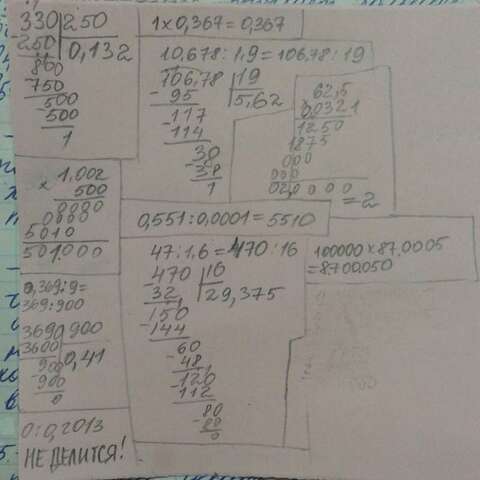 330 250
-250 0,132
800
750
500
-500
1
1x0,367=0,367
10,678:1,9=106,78:19
106,78 19
-95 5,62
-117
114
-38
38
1
62,5
0,0321
1250
1875
000
000
02,0000
=2
x 1,002
500
0000
0000
5010
501000
0,551:0,0001=5510
47:1,6=470:16
-470 16
32 29,375
-150
-144
-60
48
-120
112
-80
80
0
100000x87,0005
=8700050
0,369:9=
369:900
3690 900
3600 0,41
900
-900
0
0:0,2013
НЕ ДЕЛИТСЯ!